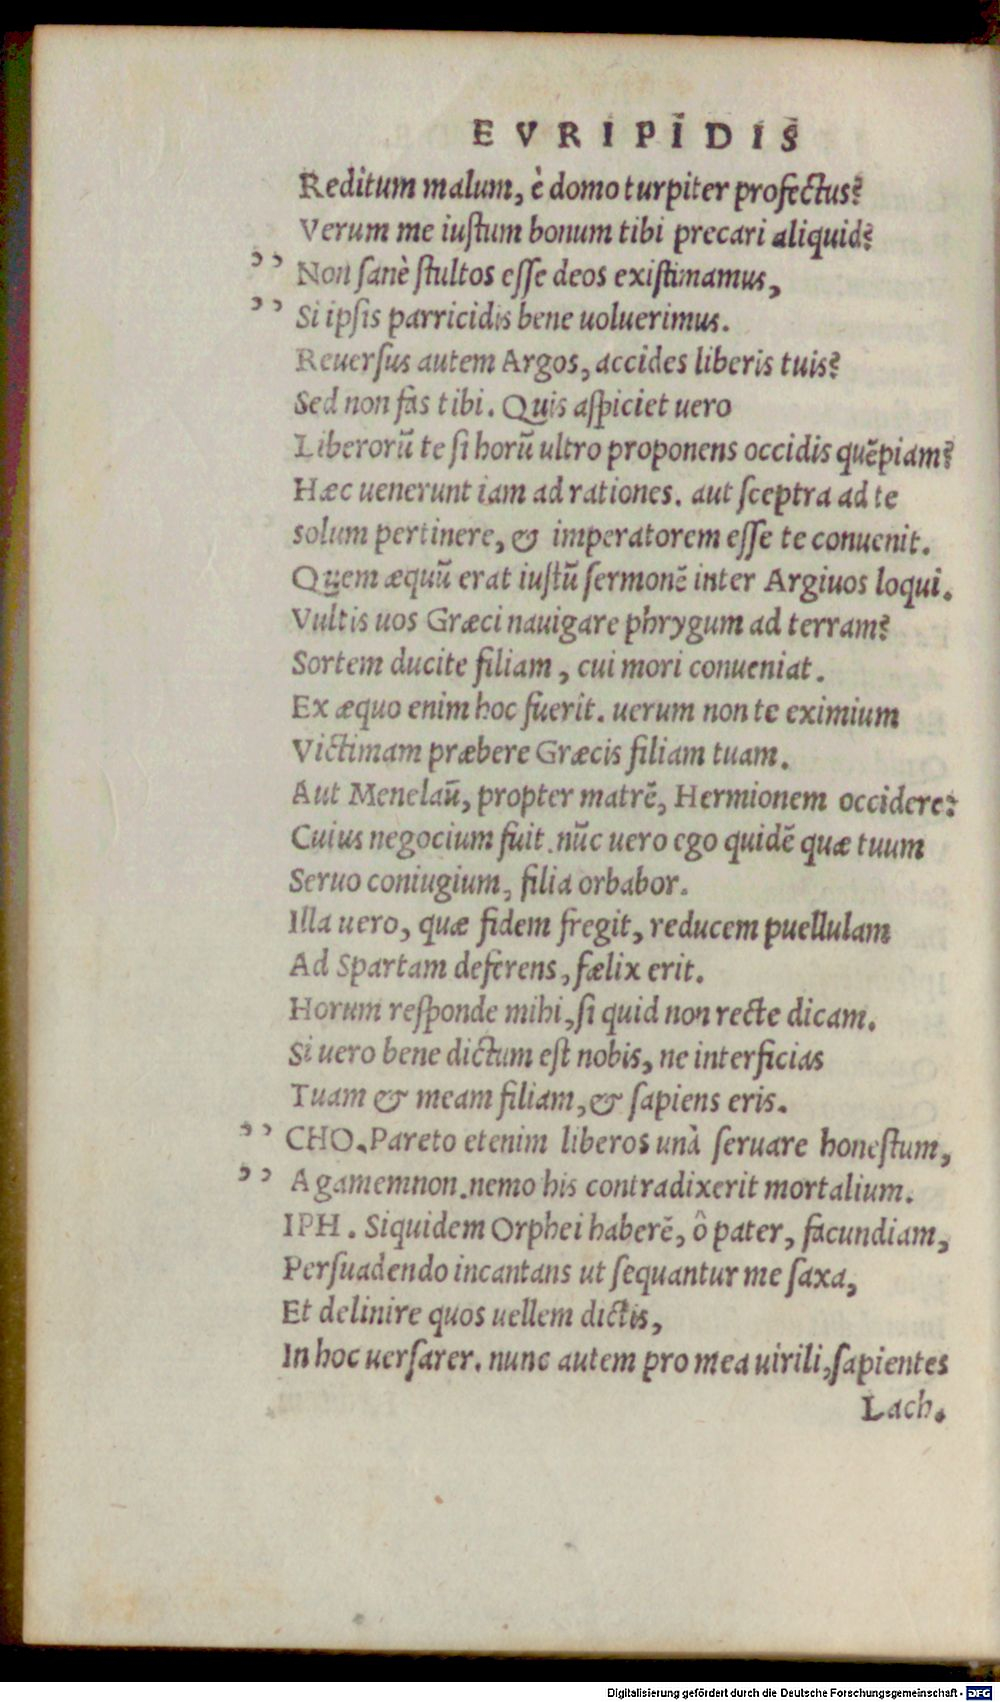 EVRIPIDIS
Reditum malum, è domo turpiter profectus?
Verum me iuſtum bonum tibi precari aliquid?
,, Non ſanè ſtultos eſſe deos exiſtimamus,
,, Si ipſis parricidis bene uoluerimus.
Reuerſus autem Argos, accides liberis tuis?
Sed non fas tibi. Quis aſpiciet uero
Liberorū te ſi horū ultro proponens occidis quēpiam?
Hæc uenerunt iam ad rationes. aut ſceptra ad te
solum pertinere, & imperatorem eſſe te conuenit.
Quem æquū erat iuſtū ſermonē inter Argiuos loqui.
Vultis uos Græci nauigare phrygum ad terram?
Sortem ducite filiam, cui mori conueniat.
Ex æquo enim hoc fuerit. uerum non te eximium
Victimam præbere Græcis filiam tuam.
Aut Menelaū, propter matrē, Hermionem occidere?
Cuius negocium fuit. nūc uero ego quidē quæ tuum
Seruo coniugium, filia orbabor.
Illa uero, quæ fidem fregit, reducem puellulam
Ad Spartam deferens, fælix erit.
Horum reſponde mihi, ſi quid non recte dicam.
Si uero bene dictum eſt nobis, ne interficias
Tuam & meam filiam, & ſapiens eris.
,, CHO. Pareto etenim liberos unà ſeruare honeſtum,
,, Agamemnon. nemo his contradixerit mortalium.
IPH. Siquidem Orphei haberē, ô pater, facundiam,
Perſuadendo incantans ut ſequantur me ſaxa,
Et delinire quos uellem dictis,
In hoc uerſarer. nunc autem pro mea uirili, ſapientes
Lach.
Digitalisierung gefördert durch die Deutsche Forschungsgemeinschaft - DFG